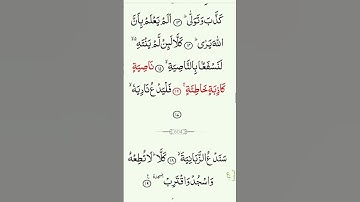 كَذَّبَ وَتَوَلّٰىؕ ۝۱۳ اَلَمْ يَعْلَمْ بِاَنَّ
اللّٰهَ يَرٰىؕ ۝۱۴ كَلَّا لَىِٕنْ لَّمْ يَنْتَهِ ۙ۬
لَنَسْفَعًۢا بِالنَّاصِيَةِۙ ۝۱۵ نَاصِيَةٍ
كَاذِبَةٍ خَاطِئَةٍۚ ۝۱۶ فَلْيَدْعُ نَادِيَهٗۙ
۝۱۷
سَنَدْعُ الزَّبَانِيَةَۙ ۝۱۸ كَلَّاؕ لَا تُطِعْهُ
وَاسْجُدْ وَاقْتَرِبْ ۩ ۝۱۹